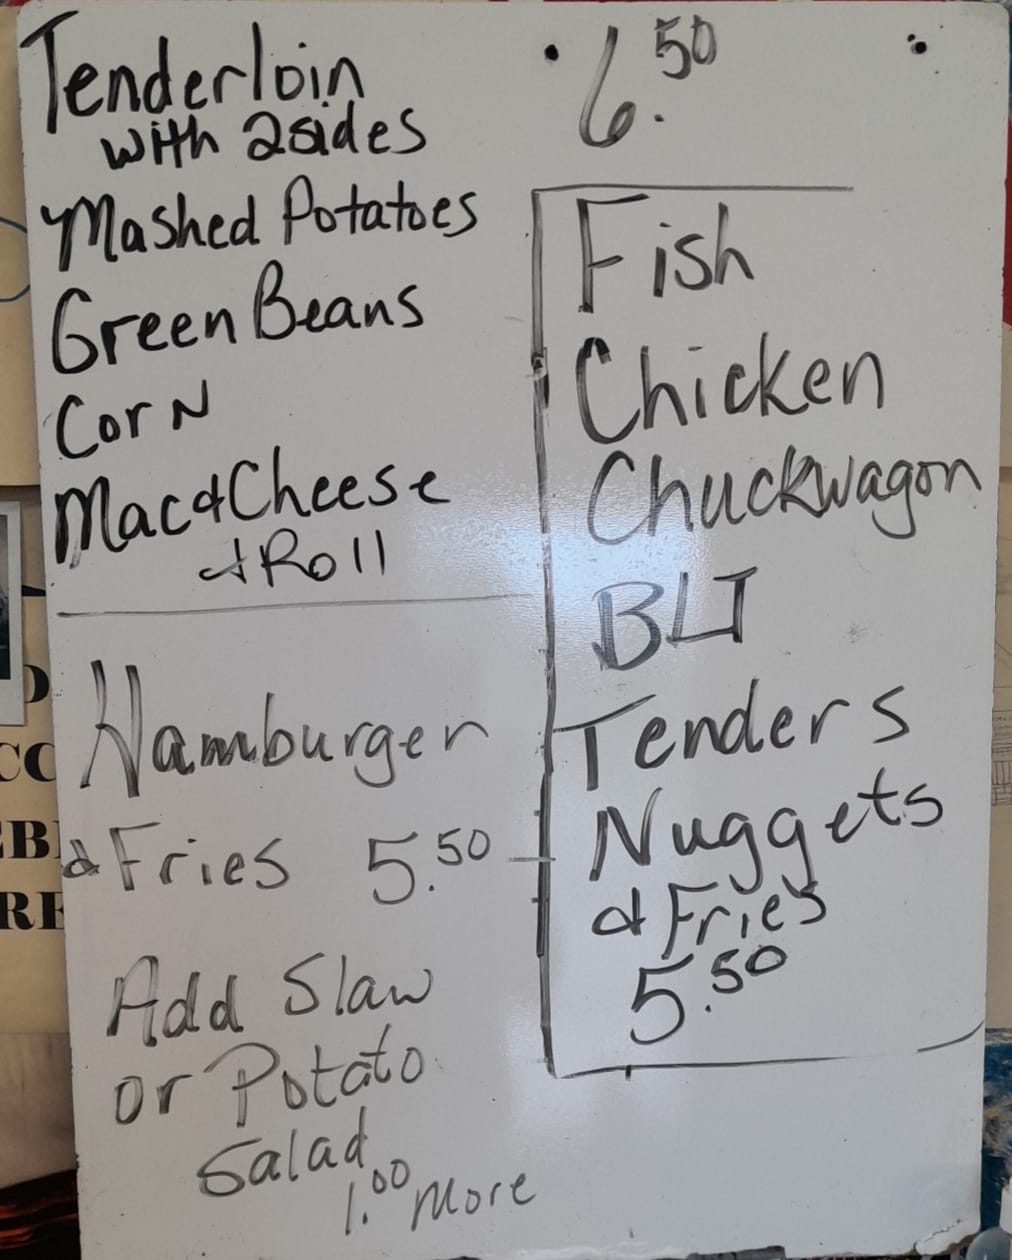 Tenderloin 6.50
with 2 sides
Mashed Potatoes
Green Beans
Corn
Mac & Cheese
& Roll
Hamburger
& Fries 5.50
Add Slaw
or Potato
Salad
1.00 More
Fish
Chicken
Chuckwagon
BLT
Tenders
Nuggets
& Fries
5.50